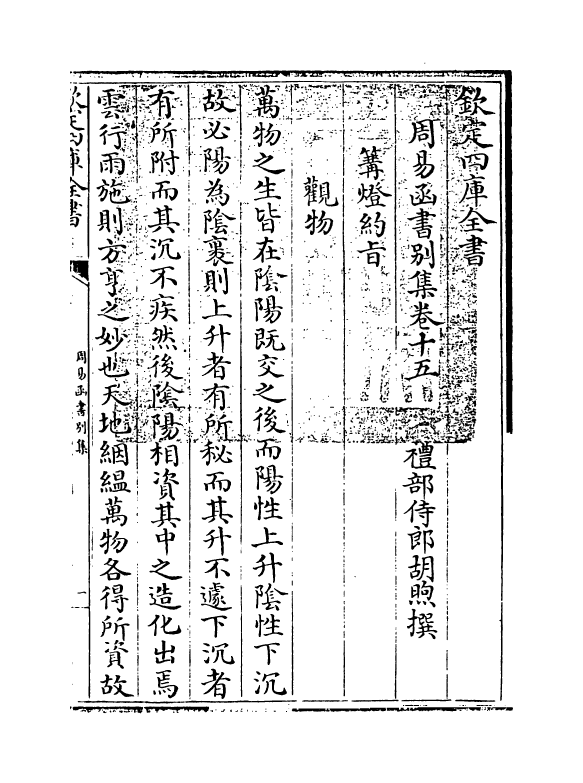 欽定四庫全書
周易函書别集卷十五
禮部侍郎胡煦撰
篝燈約旨
觀物
萬物之生皆在陰陽既交之後而陽性上升陰性下沉
故必陽為陰裹則上升者有所秘而其升不遽下沉者
有所附而其沉不疾然後陰陽相資其中之造化出焉
雲行雨施則方亨之妙也天地絪縕萬物各得所資故
欽定四庫全書
周易函書别集
一